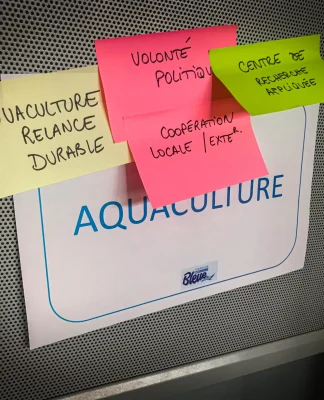 VOLONTÉ
POLITIQU
CENTRE DE
RECHERCHE
APPLIQUÉE
UACULTURE
RELANCE
DURABLE
COOPÉRATION
LOCALE / EXTER.
AQUACULTURE
Bleue